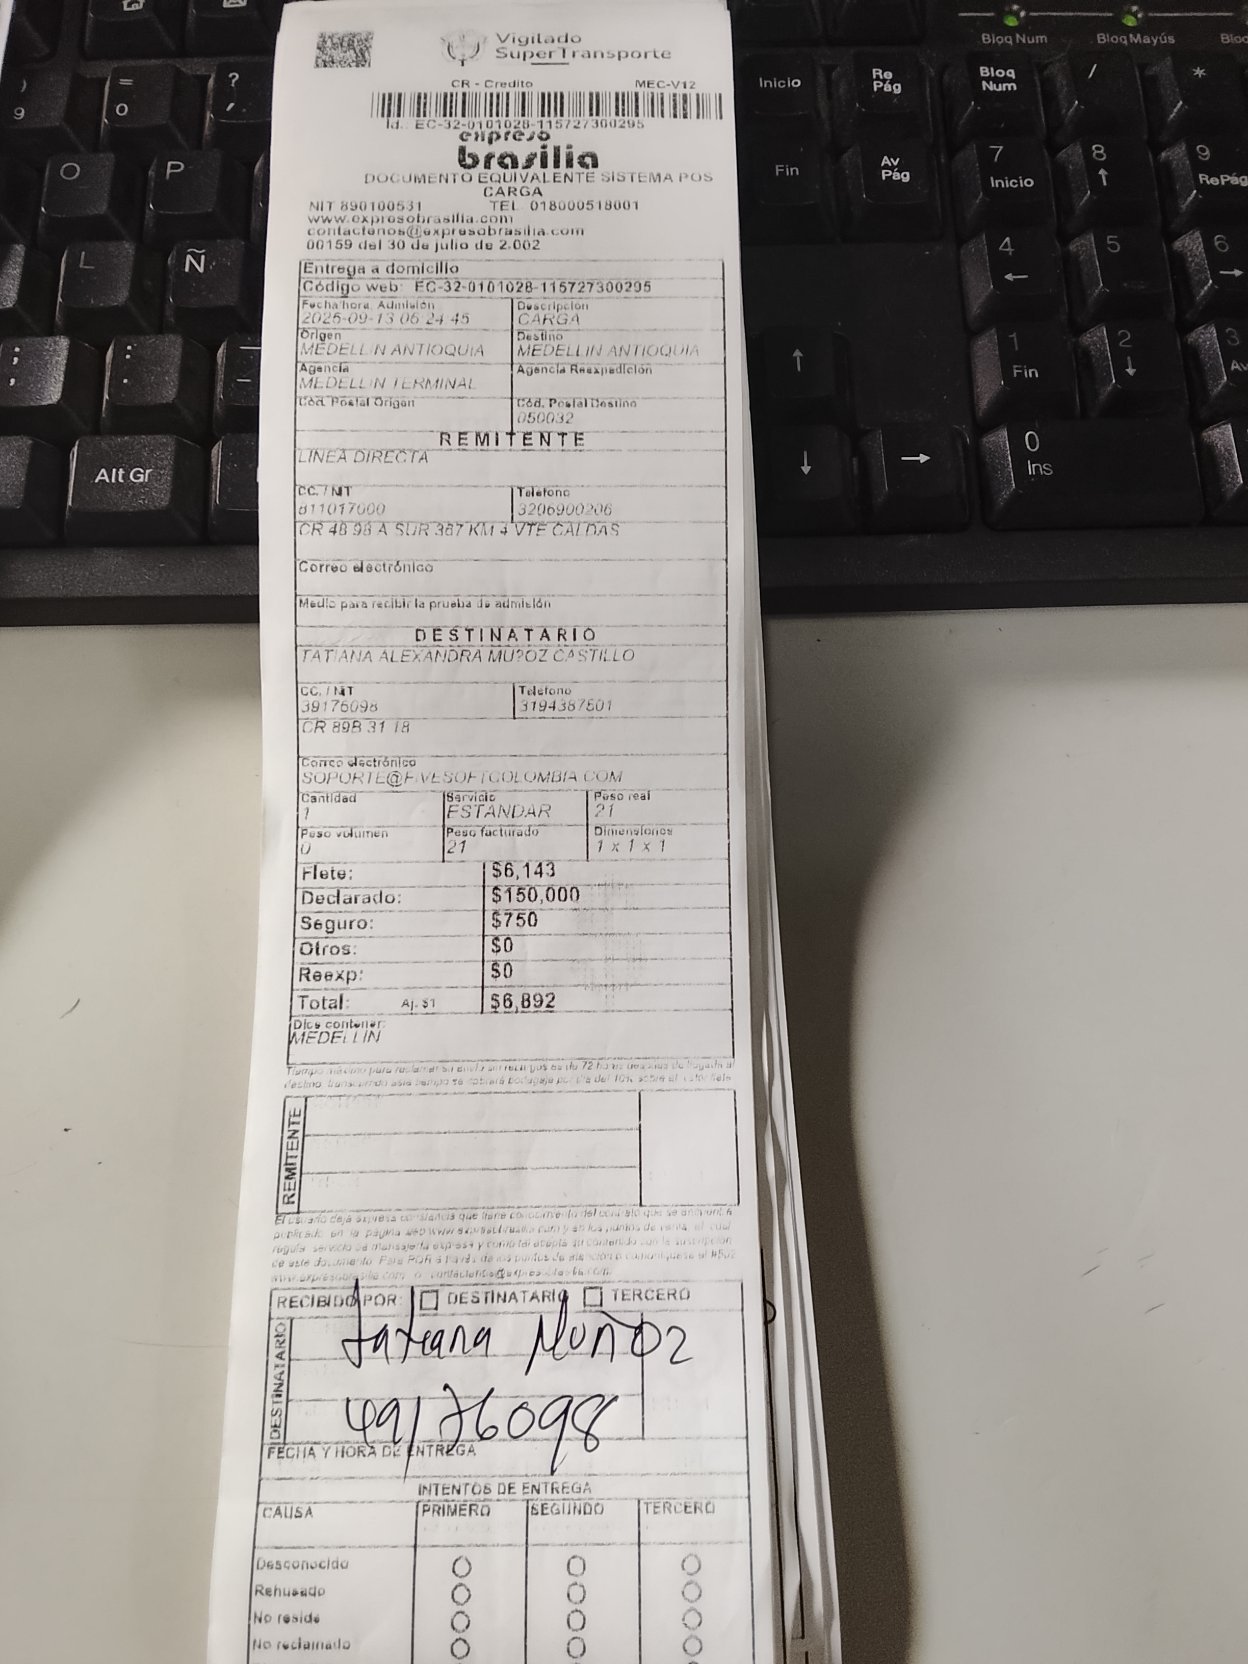 Vigilado
SuperTransporte
CR - Credito MEC-V12
Id.: EC-32-0101028-115727300295
expreso
brasilia
DOCUMENTO EQUIVALENTE SISTEMA POS
CARGA
NIT 890100531 TEL. 018000518001
www.expresobrasilia.com
contactenos@expresobrasilia.com
00159 del 30 de julio de 2.002
Entrega a domicilio
Código web: EC-32-0101028-115727300295
Fecha/hora. Admisión Descripción
2025-09-13 06 24 45 CARGA
Origen Destino
MEDELLIN ANTIOQUIA MEDELLIN ANTIOQUIA
Agencia Agencia Reexpedición
MEDELLIN TERMINAL
Cód. Postal Origen Cód. Postal Destino
050032
REMITENTE
LINEA DIRECTA
CC. / NIT Teléfono
811017000 3206900206
CR 48 98 A SUR 387 KM 4 VTE CALDAS
Correo electrónico
Medio para recibir la prueba de admisión
DESTINATARIO
TATIANA ALEXANDRA MU?OZ CASTILLO
CC. / NIT Teléfono
39176098 3194387501
CR 89B 31 18
Correo electrónico
SOPORTE@FIVESOFTCOLOMBIA.COM
Cantidad Servicio Peso real
1 ESTANDAR 21
Peso volumen Peso facturado Dimensiones
0 21 1 x 1 x 1
Flete: $6,143
Declarado: $150,000
Seguro: $750
Otros: $0
Reexp: $0
Total: Aj. $1 $6,892
Dice contener:
MEDELLIN
Tiempo máximo para reclamar su envío sin recargos es de 72 horas después de llegada al
destino, transcurrido este tiempo se cobrará bodegaje por día del 10% sobre el valor flete
REMITENTE
El usuario deja expresa constancia que tiene conocimiento del contrato que se encuentra
publicado en la página web www.expresobrasilia.com y en los puntos de venta, el cual
regula servicio de mensajería expresa y como tal acepta su contenido con la suscripción
de este documento. Para PQR a través de los puntos de atención o comuníquese al #502
www.expresobrasilia.com o contactenos@expresobrasilia.com
RECIBIDO POR: DESTINATARIO TERCERO
DESTINATARIO
Tatiana Muñoz
49176098
FECHA Y HORA DE ENTREGA
INTENTOS DE ENTREGA
CAUSA PRIMERO SEGUNDO TERCERO
Desconocido
Rehusado
No reside
No reclamado
Bloq Num Bloq Mayús
Inicio Re Pág Bloq Num / *
Fin Av Pág 7 Inicio 8 9 RePág
4 5 6
1 Fin 2 3 Av
0 Ins
) 9 = 0 ? '
O P
L Ñ
; , : . _ -
Alt Gr